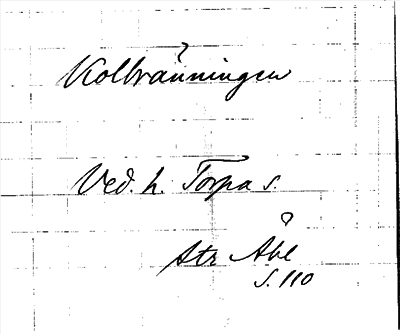 Kolbränningen
Ved. h. Torpa s.
Str Åbl
S. 110